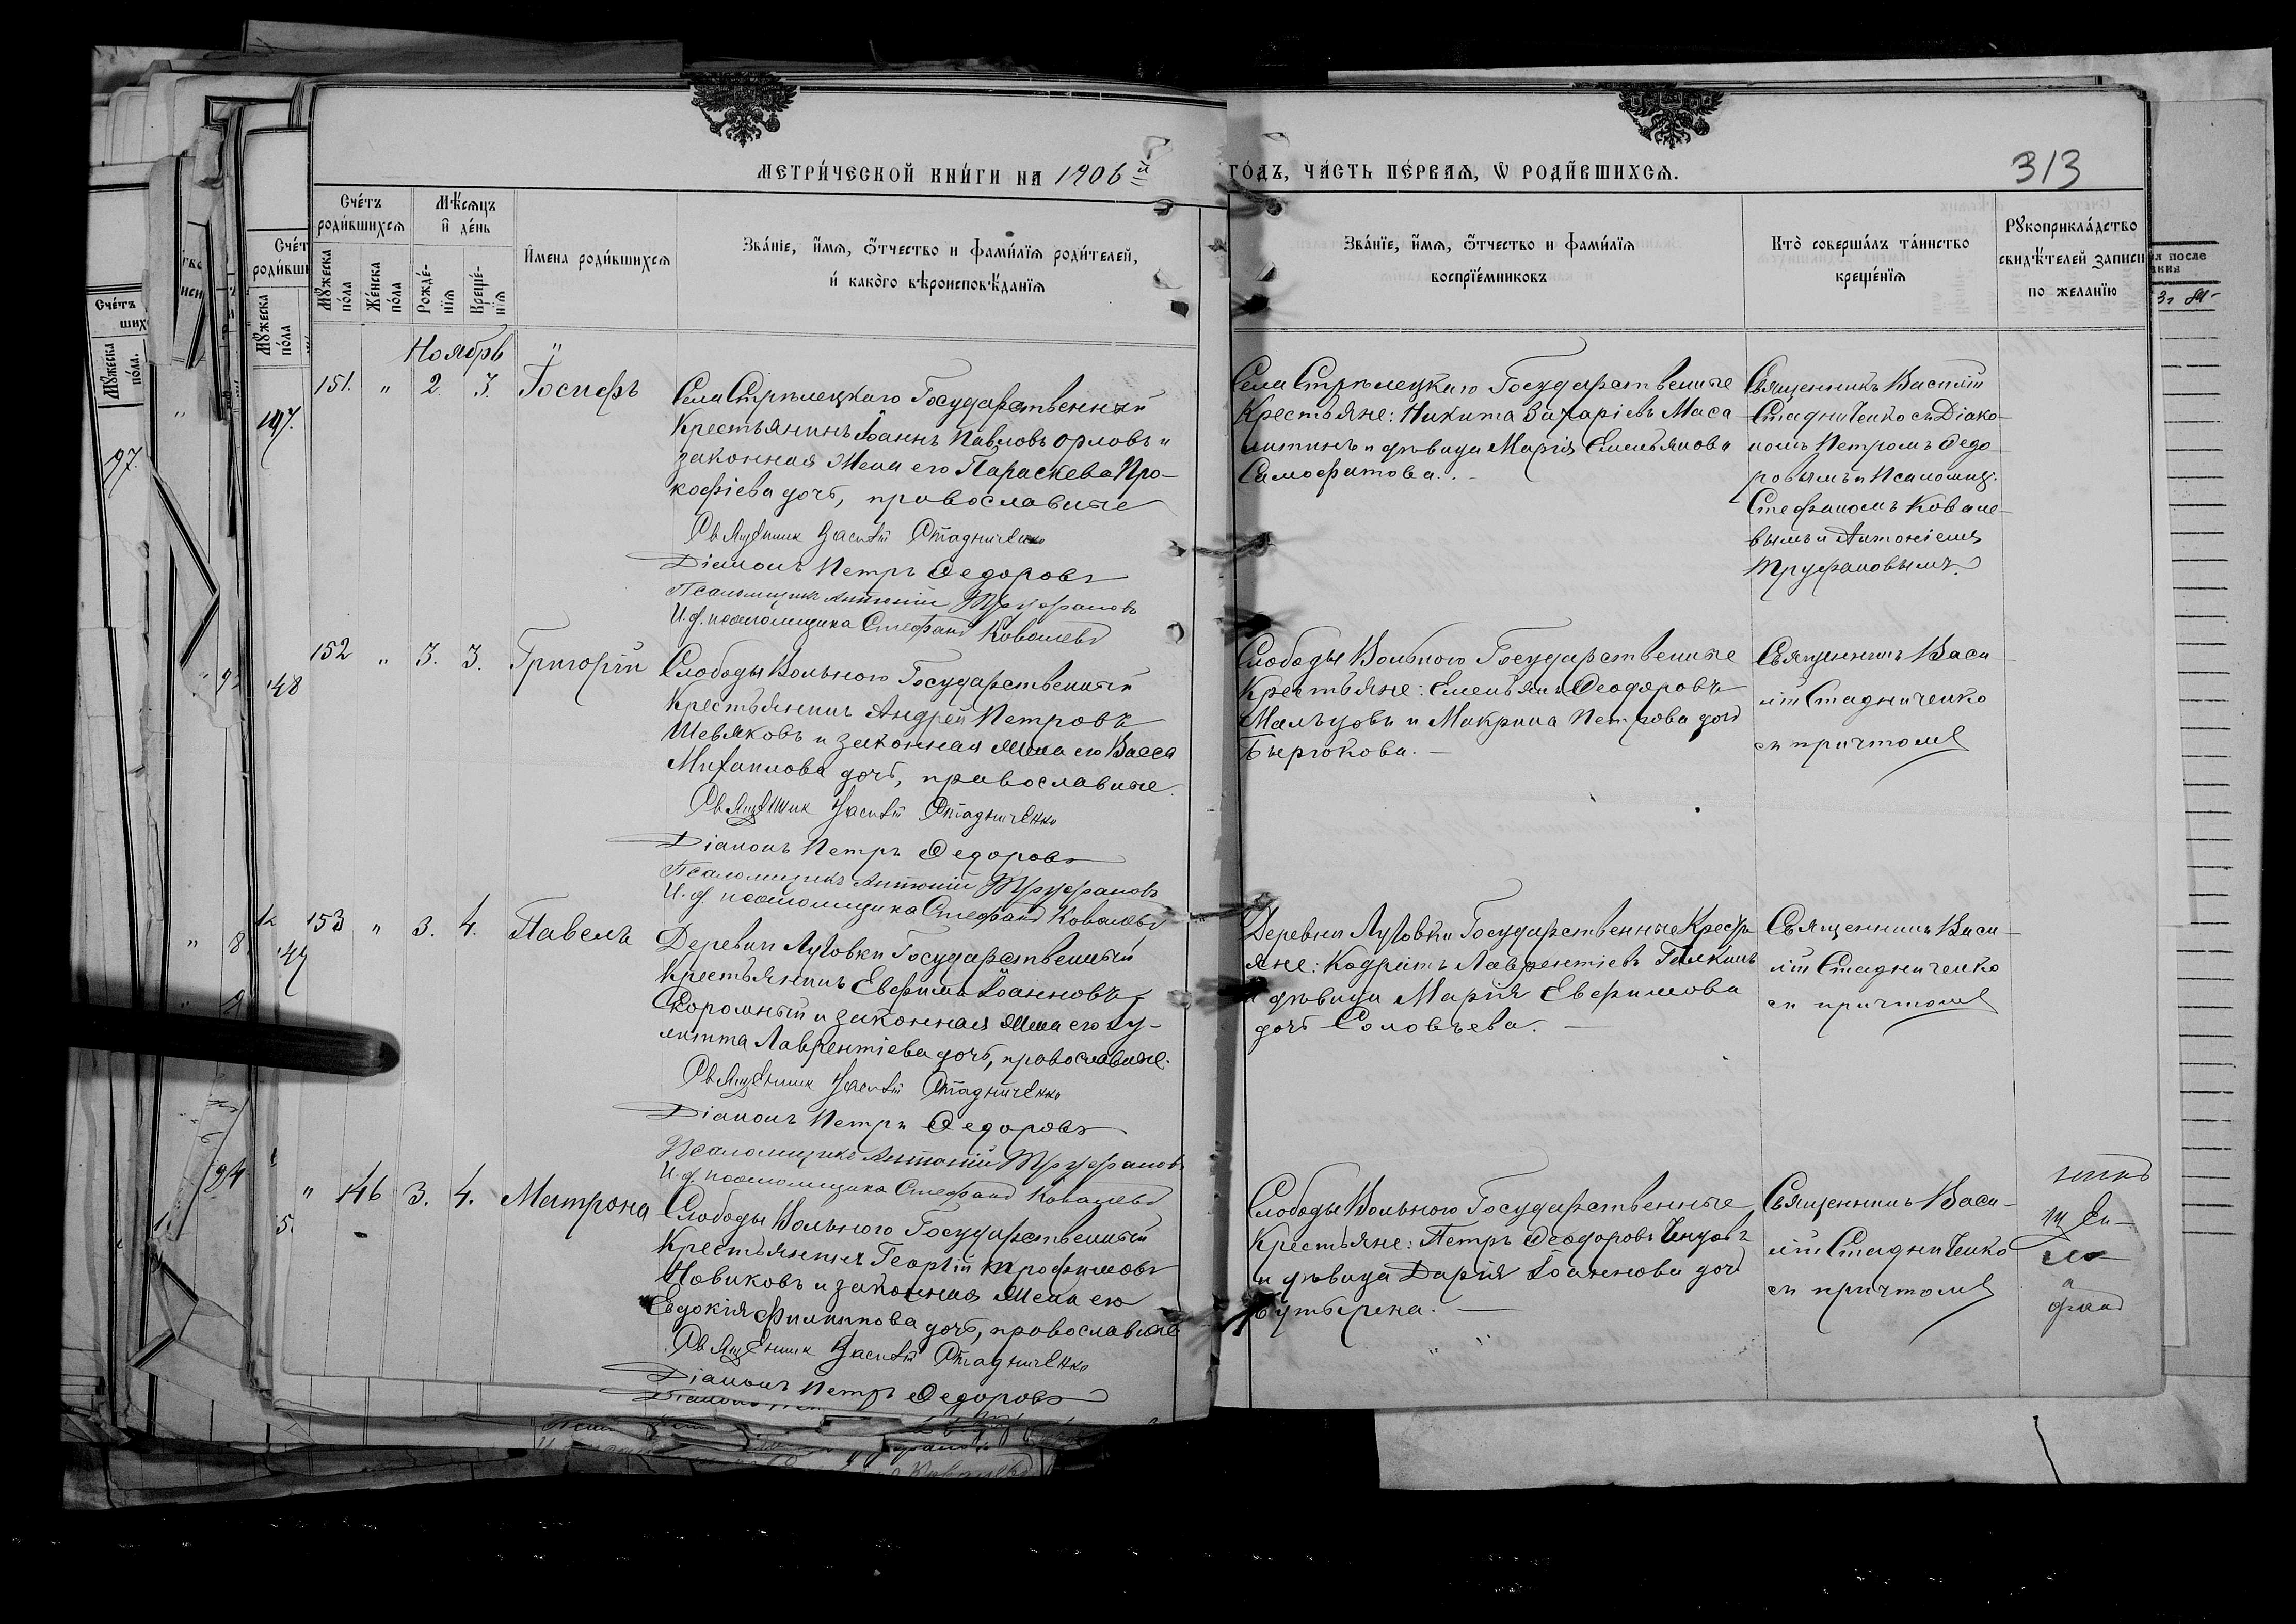 МЕТРИ́ЧЕСКОЙ КНИ́ГИ НА 1906
ГО́ДЪ, ЧА́СТЬ ПЕ́РВАЯ, Ѡ РОДИ́ВШИХСЯ.
313
Сче́тъ роди́вшихся
Мѣ́сяцъ и де́нь
Му́жеска по́ла
Же́нска по́ла
Рожде́нія
Креще́нія
И́мена роди́вшихся
Зва́нїе, и́мя, о́тчество и фами́лїя роди́телей,
и́ како́го вѣроисповѣ́данїя
Зва́нїе, и́мя, о́тчество и фами́лїя
воспрїе́мниковъ
Кто̀ соверша́лъ та́инство
креще́нїя
Рукоприкла́дство
свидѣ́телей записи
по жела́нїю
Ноябрь
151. " 2. 3. Іосифъ
Села Стрѣлецкаго Государственный
Крестьянинъ Іоаннъ Павловъ Орловъ и
законная жена его Параскева Про-
кофіева дочь, православные
Священник Василій Стадниченко
Діаконъ Петръ Федоровъ
Псаломщикъ Антоній Труфановъ
И. д. псаломщика Стефанъ Ковалевъ
Села Стрѣлецкаго Государственные
Крестьяне: Никита Захаріевъ Маса
литинъ и дѣвица Марія Емельянова
Самофатова. -
Священникъ Василій
Стадниченко съ Діако-
номъ Петромъ Федо
ровымъ и Псаломщ.
Стефаномъ Ковале-
вымъ и Антоніемъ
Труфановымъ.
152 " 3. 3. Григорій
Слободы Вольного Государственный
Крестьянинъ Андрей Петровъ
Шевляковъ и законная жена его Васса
Михаилова дочь, православные.
Священник Василій Стадниченко
Діаконъ Петръ Федоровъ
Псаломщикъ Антоній Труфановъ
И. д. псаломщика Стефанъ Ковалевъ
Слободы Вольного Государственные
Крестьяне: Емельянъ Феодоровъ
Мальцовъ и Макрина Петрова дочь
Бырюкова. -
Священникъ Васи
лій Стадниченко
съ причтомъ
153 " 3. 4. Павелъ
Деревни Луговки Государственный
Крестьянинъ Евфимъ Іоанновъ
Скоромный и законная жена его Іу-
литта Лаврентіева дочь, православные.
Священник Василій Стадниченко
Діаконъ Петръ Федоровъ
Псаломщикъ Антоній Труфановъ
И. д. псаломщика Стефанъ Ковалевъ
Деревни Луговки Государственные Кресть
яне: Кодратъ Лаврентіевъ Галкинъ
и дѣвица Марія Евфимова
дочь Соловьева. -
Священникъ Васи-
лій Стадниченко
съ причтомъ
" 146 3. 4. Матрона
Слободы Вольного Государственный
Крестьянинъ Георгій Трофимовъ
Новиковъ и законная жена его
Евдокія Филиппова дочь, православные
Священник Василій Стадниченко
Діаконъ Петръ Федоровъ
Слободы Вольного Государственные
Крестьяне: Петръ Феодоровъ
и дѣвица Дарія Іоаннова дочь
Священникъ Васи-
лій Стадниченко
съ причтомъ